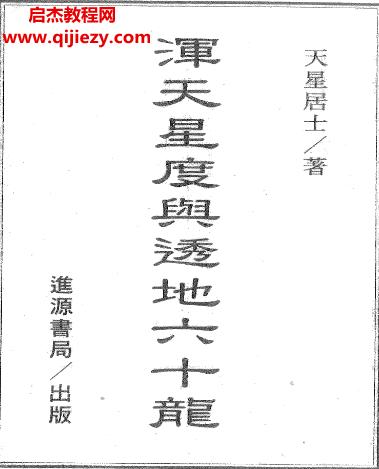 启杰教程网
www.qijiezy.com
天星居士／著
渾天星度與透地六十龍
進源書局／出版